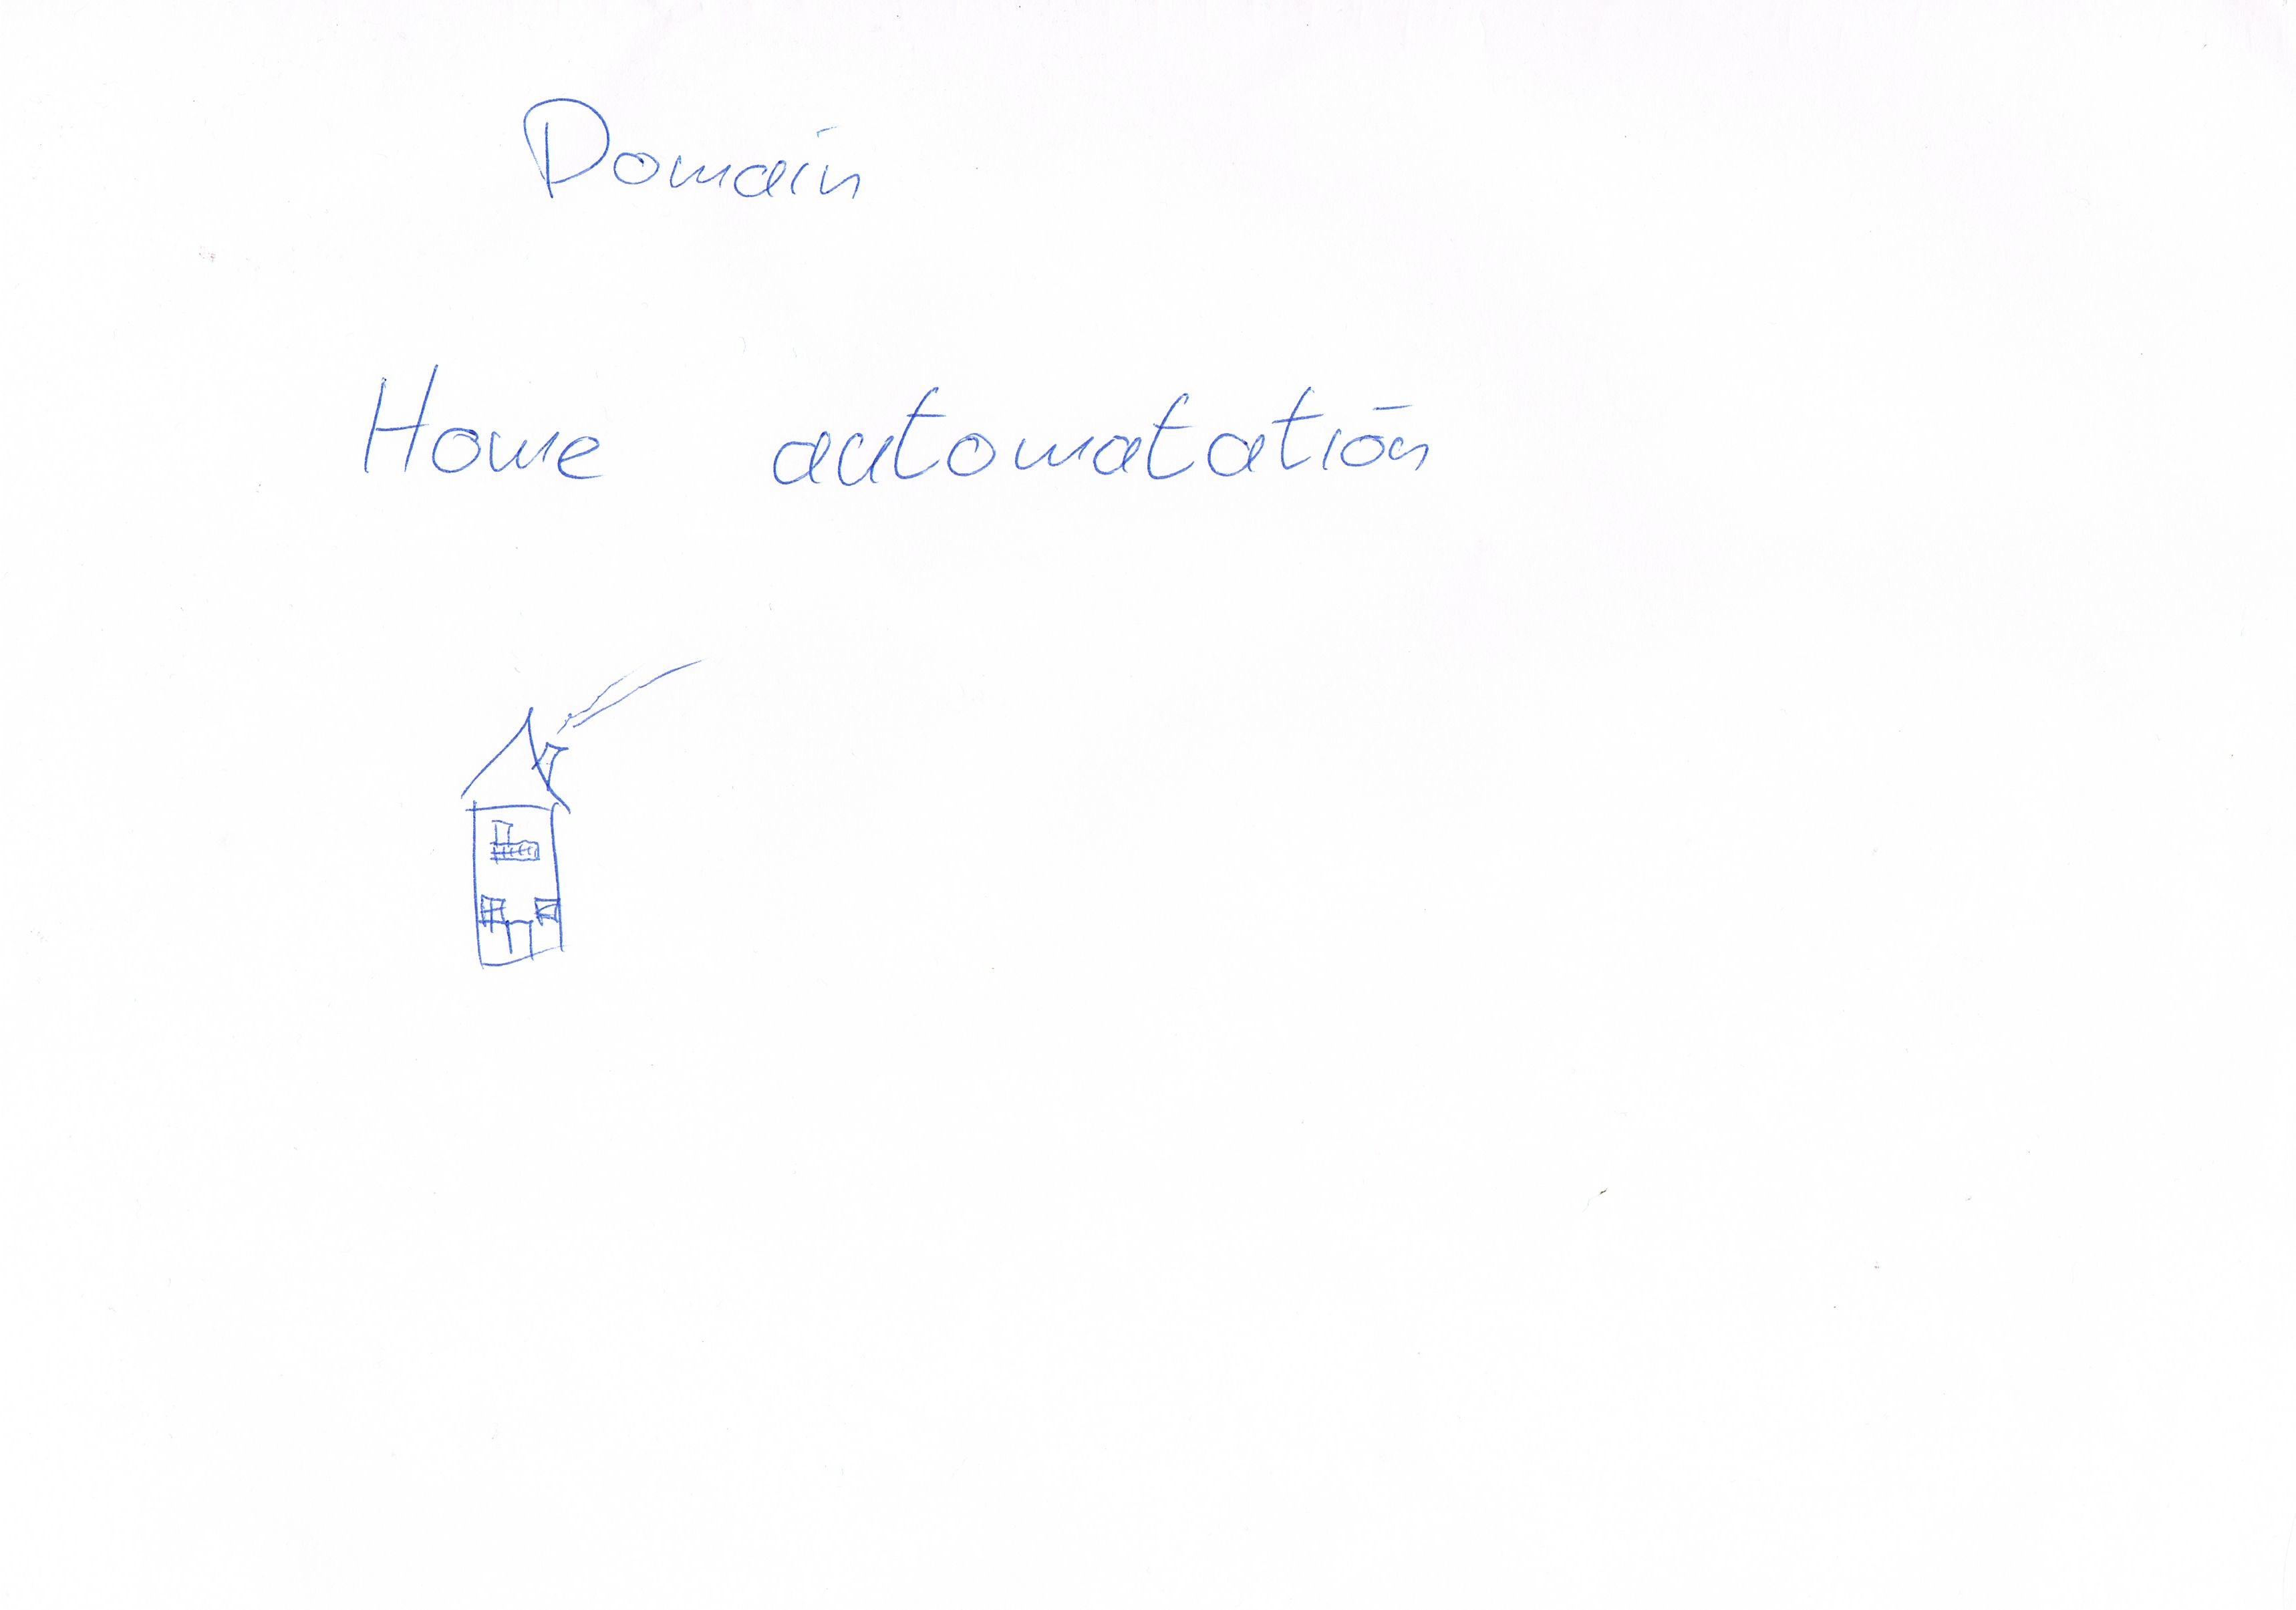 Domain
Home automatation